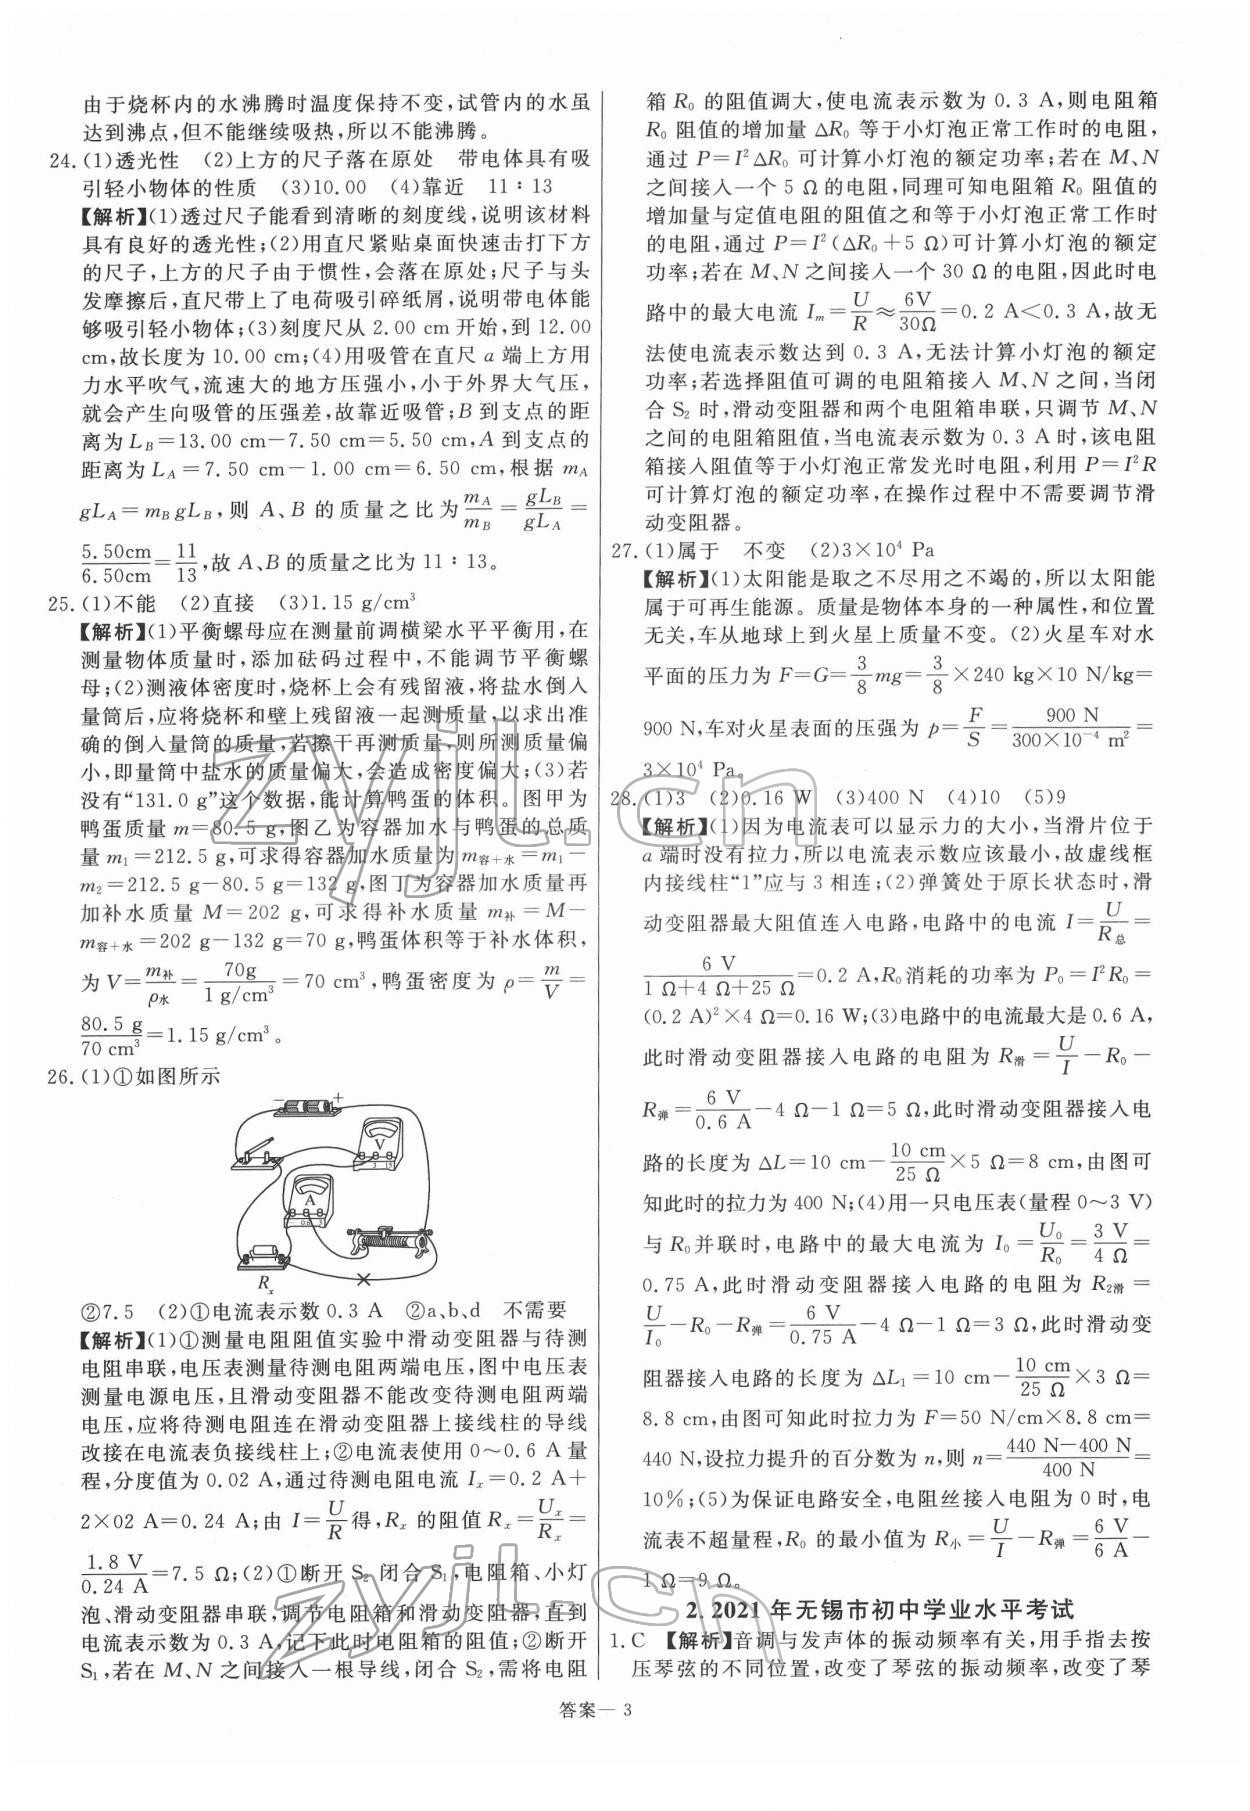 由于烧杯内的水沸腾时温度保持不变,试管内的水虽
达到沸点,但不能继续吸热,所以不能沸腾。
24.(1)透光性 (2)上方的尺子落在原处 带电体具有吸
引轻小物体的性质 (3)10.00 (4)靠近 11∶13
【解析】(1)透过尺子能看到清晰的刻度线,说明该材料
具有良好的透光性;(2)用直尺紧贴桌面快速击打下方
的尺子,上方的尺子由于惯性,会落在原处;尺子与头
发摩擦后,直尺带上了电荷吸引碎纸屑,说明带电体能
够吸引轻小物体;(3)刻度尺从 2.00 cm 开始,到 12.00
cm,故长度为 10.00 cm;(4)用吸管在直尺 a 端上方用
力水平吹气,流速大的地方压强小,小于外界大气压,
就会产生向吸管的压强差,故靠近吸管;B 到支点的距
离为 L_B=13.00 cm-7.50 cm=5.50 cm,A 到支点的
距离为 L_A=7.50 cm-1.00 cm=6.50 cm,根据 m_A
gL_A=m_B gL_B,则 A、B 的质量之比为 m_A/m_B = gL_B/gL_A =
5.50cm/6.50cm=11/13,故 A、B 的质量之比为 11∶13。
25.(1)不能 (2)直接 (3)1.15 g/cm³
【解析】(1)平衡螺母应在测量前调横梁水平平衡用,在
测量物体质量时,添加砝码过程中,不能调节平衡螺
母;(2)测液体密度时,烧杯上会有残留液,将盐水倒入
量筒后,应将烧杯和壁上残留液一起测质量,以求出准
确的倒入量筒的质量,若擦干再测质量,则所测质量偏
小,即量筒中盐水的质量偏大,会造成密度偏大;(3)若
没有“131.0 g”这个数据,能计算鸭蛋的体积。图甲为
鸭蛋质量 m=80.5 g,图乙为容器加水与鸭蛋的总质
量 m₁=212.5 g,可求得容器加水质量为 m容+水=m₁-
m₂=212.5 g-80.5 g=132 g,图丁为容器加水质量再
加补水质量 M=202 g,可求得补水质量 m补=M-
m容+水=202 g-132 g=70 g,鸭蛋体积等于补水体积,
为 V=m补/ρ水=70g/1 g/cm³=70 cm³,鸭蛋密度为 ρ=m/V=
80.5 g/70 cm³=1.15 g/cm³。
26.(1)①如图所示
- +
V
3 15
A
0.6 3
Rₓ
②7.5 (2)①电流表示数 0.3 A ②a、b、d 不需要
【解析】(1)①测量电阻阻值实验中滑动变阻器与待测
电阻串联,电压表测量待测电阻两端电压,图中电压表
测量电源电压,且滑动变阻器不能改变待测电阻两端
电压,应将待测电阻连在滑动变阻器上接线柱的导线
改接在电流表负接线柱上;②电流表使用 0~0.6 A 量
程,分度值为 0.02 A,通过待测电阻电流 Iₓ=0.2 A+
2×02 A=0.24 A;由 I=U/R得,Rₓ 的阻值 Rₓ=Uₓ/Rₓ=
1.8 V/0.24 A=7.5 Ω;(2)①断开 S₂ 闭合 S₁,电阻箱、小灯
泡、滑动变阻器串联,调节电阻箱和滑动变阻器,直到
电流表示数为 0.3 A,记下此时电阻箱的阻值;②断开
S₁,若在 M、N 之间接入一根导线,闭合 S₂,需将电阻
箱 R₀ 的阻值调大,使电流表示数为 0.3 A,则电阻箱
R₀ 阻值的增加量 ΔR₀ 等于小灯泡正常工作时的电阻,
通过 P=I²ΔR₀ 可计算小灯泡的额定功率;若在 M、N
之间接入一个 5 Ω 的电阻,同理可知电阻箱 R₀ 阻值的
增加量与定值电阻的阻值之和等于小灯泡正常工作时
的电阻,通过 P=I²(ΔR₀+5 Ω)可计算小灯泡的额定
功率;若在 M、N 之间接入一个 30 Ω 的电阻,因此时电
路中的最大电流 Iₘ=U/R≈6V/30Ω=0.2 A<0.3 A,故无
法使电流表示数达到 0.3 A,无法计算小灯泡的额定
功率;若选择阻值可调的电阻箱接入 M、N 之间,当闭
合 S₂ 时,滑动变阻器和两个电阻箱串联,只调节 M、N
之间的电阻箱阻值,当电流表示数为 0.3 A 时,该电阻
箱接入阻值等于小灯泡正常发光时电阻,利用 P=I²R
可计算灯泡的额定功率,在操作过程中不需要调节滑
动变阻器。
27.(1)属于 不变 (2)3×10⁴ Pa
【解析】(1)太阳能是取之不尽用之不竭的,所以太阳能
属于可再生能源。质量是物体本身的一种属性,和位置
无关,车从地球上到火星上质量不变。(2)火星车对水
平面的压力为 F=G=3/8mg=3/8×240 kg×10 N/kg=
900 N,车对火星表面的压强为 p=F/S=900 N/300×10⁻⁴ m²=
3×10⁴ Pa。
28.(1)3 (2)0.16 W (3)400 N (4)10 (5)9
【解析】(1)因为电流表可以显示力的大小,当滑片位于
a 端时没有拉力,所以电流表示数应该最小,故虚线框
内接线柱“1”应与 3 相连;(2)弹簧处于原长状态时,滑
动变阻器最大阻值连入电路,电路中的电流 I=U/R总=
6 V/1 Ω+4 Ω+25 Ω=0.2 A,R₀消耗的功率为 P₀=I²R₀=
(0.2 A)²×4 Ω=0.16 W;(3)电路中的电流最大是 0.6 A,
此时滑动变阻器接入电路的电阻为 R滑=U/I-R₀-
R弹=6 V/0.6 A-4 Ω-1 Ω=5 Ω,此时滑动变阻器接入电
路的长度为 ΔL=10 cm-10 cm/25 Ω×5 Ω=8 cm,由图可
知此时的拉力为 400 N;(4)用一只电压表(量程 0~3 V)
与 R₀并联时,电路中的最大电流为 I₀=U₀/R₀=3 V/4 Ω=
0.75 A,此时滑动变阻器接入电路的电阻为 R₂滑=
U/I₀-R₀-R弹=6 V/0.75 A-4 Ω-1 Ω=3 Ω,此时滑动变
阻器接入电路的长度为 ΔL₁=10 cm-10 cm/25 Ω×3 Ω=
8.8 cm,由图可知此时拉力为 F=50 N/cm×8.8 cm=
440 N,设拉力提升的百分数为 n,则 n=440 N-400 N/400 N=
10%;(5)为保证电路安全,电阻丝接入电阻为 0 时,电
流表不超量程,R₀ 的最小值为 R小=U/I-R弹=6 V/6 A-
1 Ω=9 Ω。
2. 2021 年无锡市初中学业水平考试
1.C 【解析】音调与发声体的振动频率有关,用手指去按
压琴弦的不同位置,改变了琴弦的振动频率,改变了琴
答案— 3
zyjl.cn
zyjl.cn